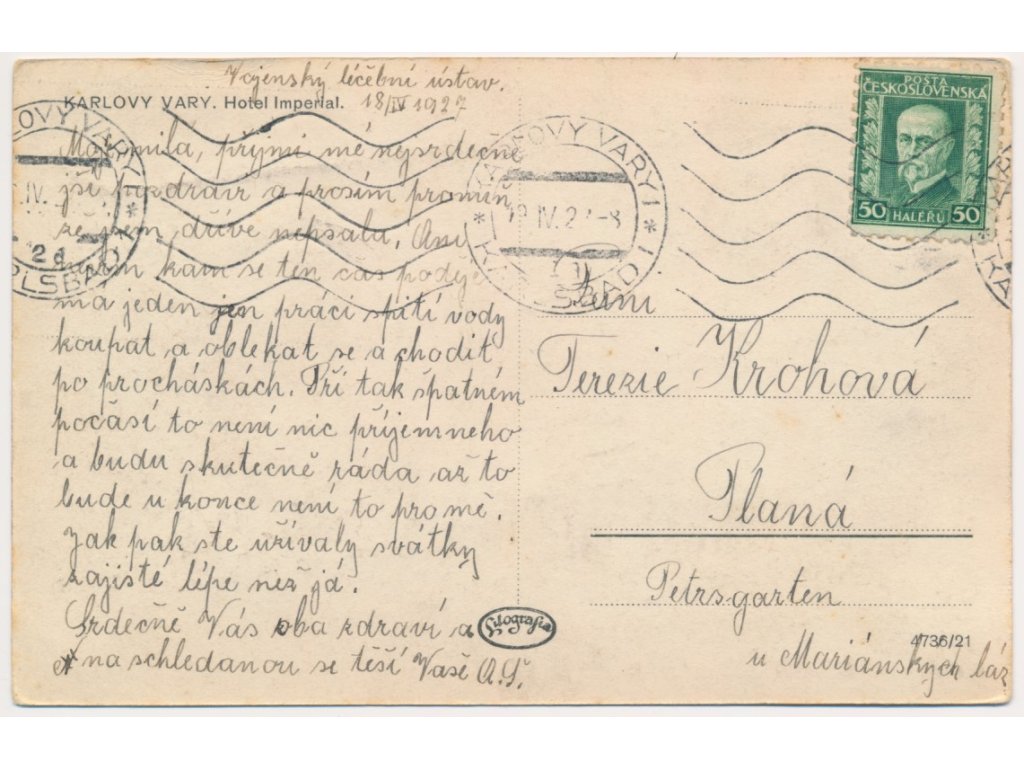 Vojenský léčební ústav.
KARLOVY VARY. Hotel Imperial. 18/IV 1927
POSTA
ČESKOSLOVENSKÁ
50 HALÉŘŮ 50
KARLOVY VARY 1
19 IV. 27-8
KARLSBAD 1
Má milá, přijmi mé nejsrdečně
jší pozdráir a prosím promiň
že jsem dříve nepsala. Ani
nevím kam se ten čas poděje
má jeden jen práci spití vody
koupat a oblekat se a chodit
po procháskách. Při tak špatném
počasí to není nic příjemneho
a budu skutečně ráda až to
bude u konce není to pro mě.
Jak pak ste užívaly svátky
zajisté lépe než já.
Srdečně Vás oba zdraví a
na schledanou se těší Vaše A.Š.
Lilografia
Paní
Terezie Krohová
Planá
Petrsgarten
4736/21
u Mariánských láz